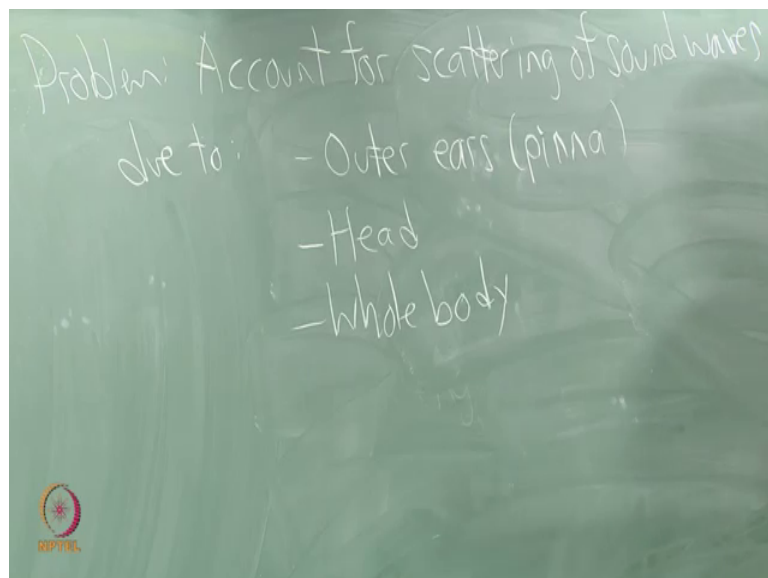 Problem: Account for scattering of sound waves
due to: - Outer ears (pinna)
- Head
- Whole body
NPTEL